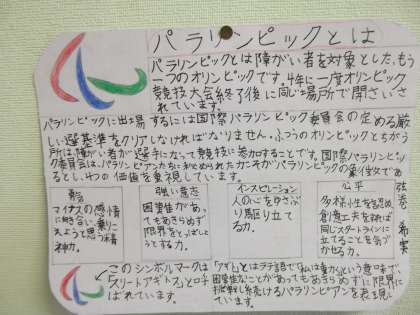 パラリンピックとは
パラリンピックとは障がい者を対象とした、もう
一つのオリンピックです。4年に一度オリンピック
競技大会終了後に同じ場所で開さいさ
れています。
パラリンピックに出場するには国際パラリンピック委員会の定める厳
しい選基準をクリアしなければなりません。ふつうのオリンピックとちがう
所は障がい者が選手になって競技に参加することです。国際パラリンピッ
ク委員会は、パラリンピアンたちに秘められた力こそがパラリンピックの象ちょうであ
るとし、4つの価値を重視しています。
勇気
マイナスの感情
に向き合い、乗りこ
えようと思う精
神力。
強い意志
困難があっ
てもあきらめず
限界をとっぱしよ
うとする力。
インスピレーション
人の心をゆさぶ
り駆り立て
る力。
公平
多様性を認め、
創意工夫をすれば
同じスタートラインに
立てることを気づ
かせる力。
このシンボルマークは
「スリーアギトス」とよ
ばれています。
「アギト」とはラテン語で「私は動く」という意味で、
困難なことがあってもあきらめずに限界に
挑戦し続けるパラリンピアンを表現し
ています。